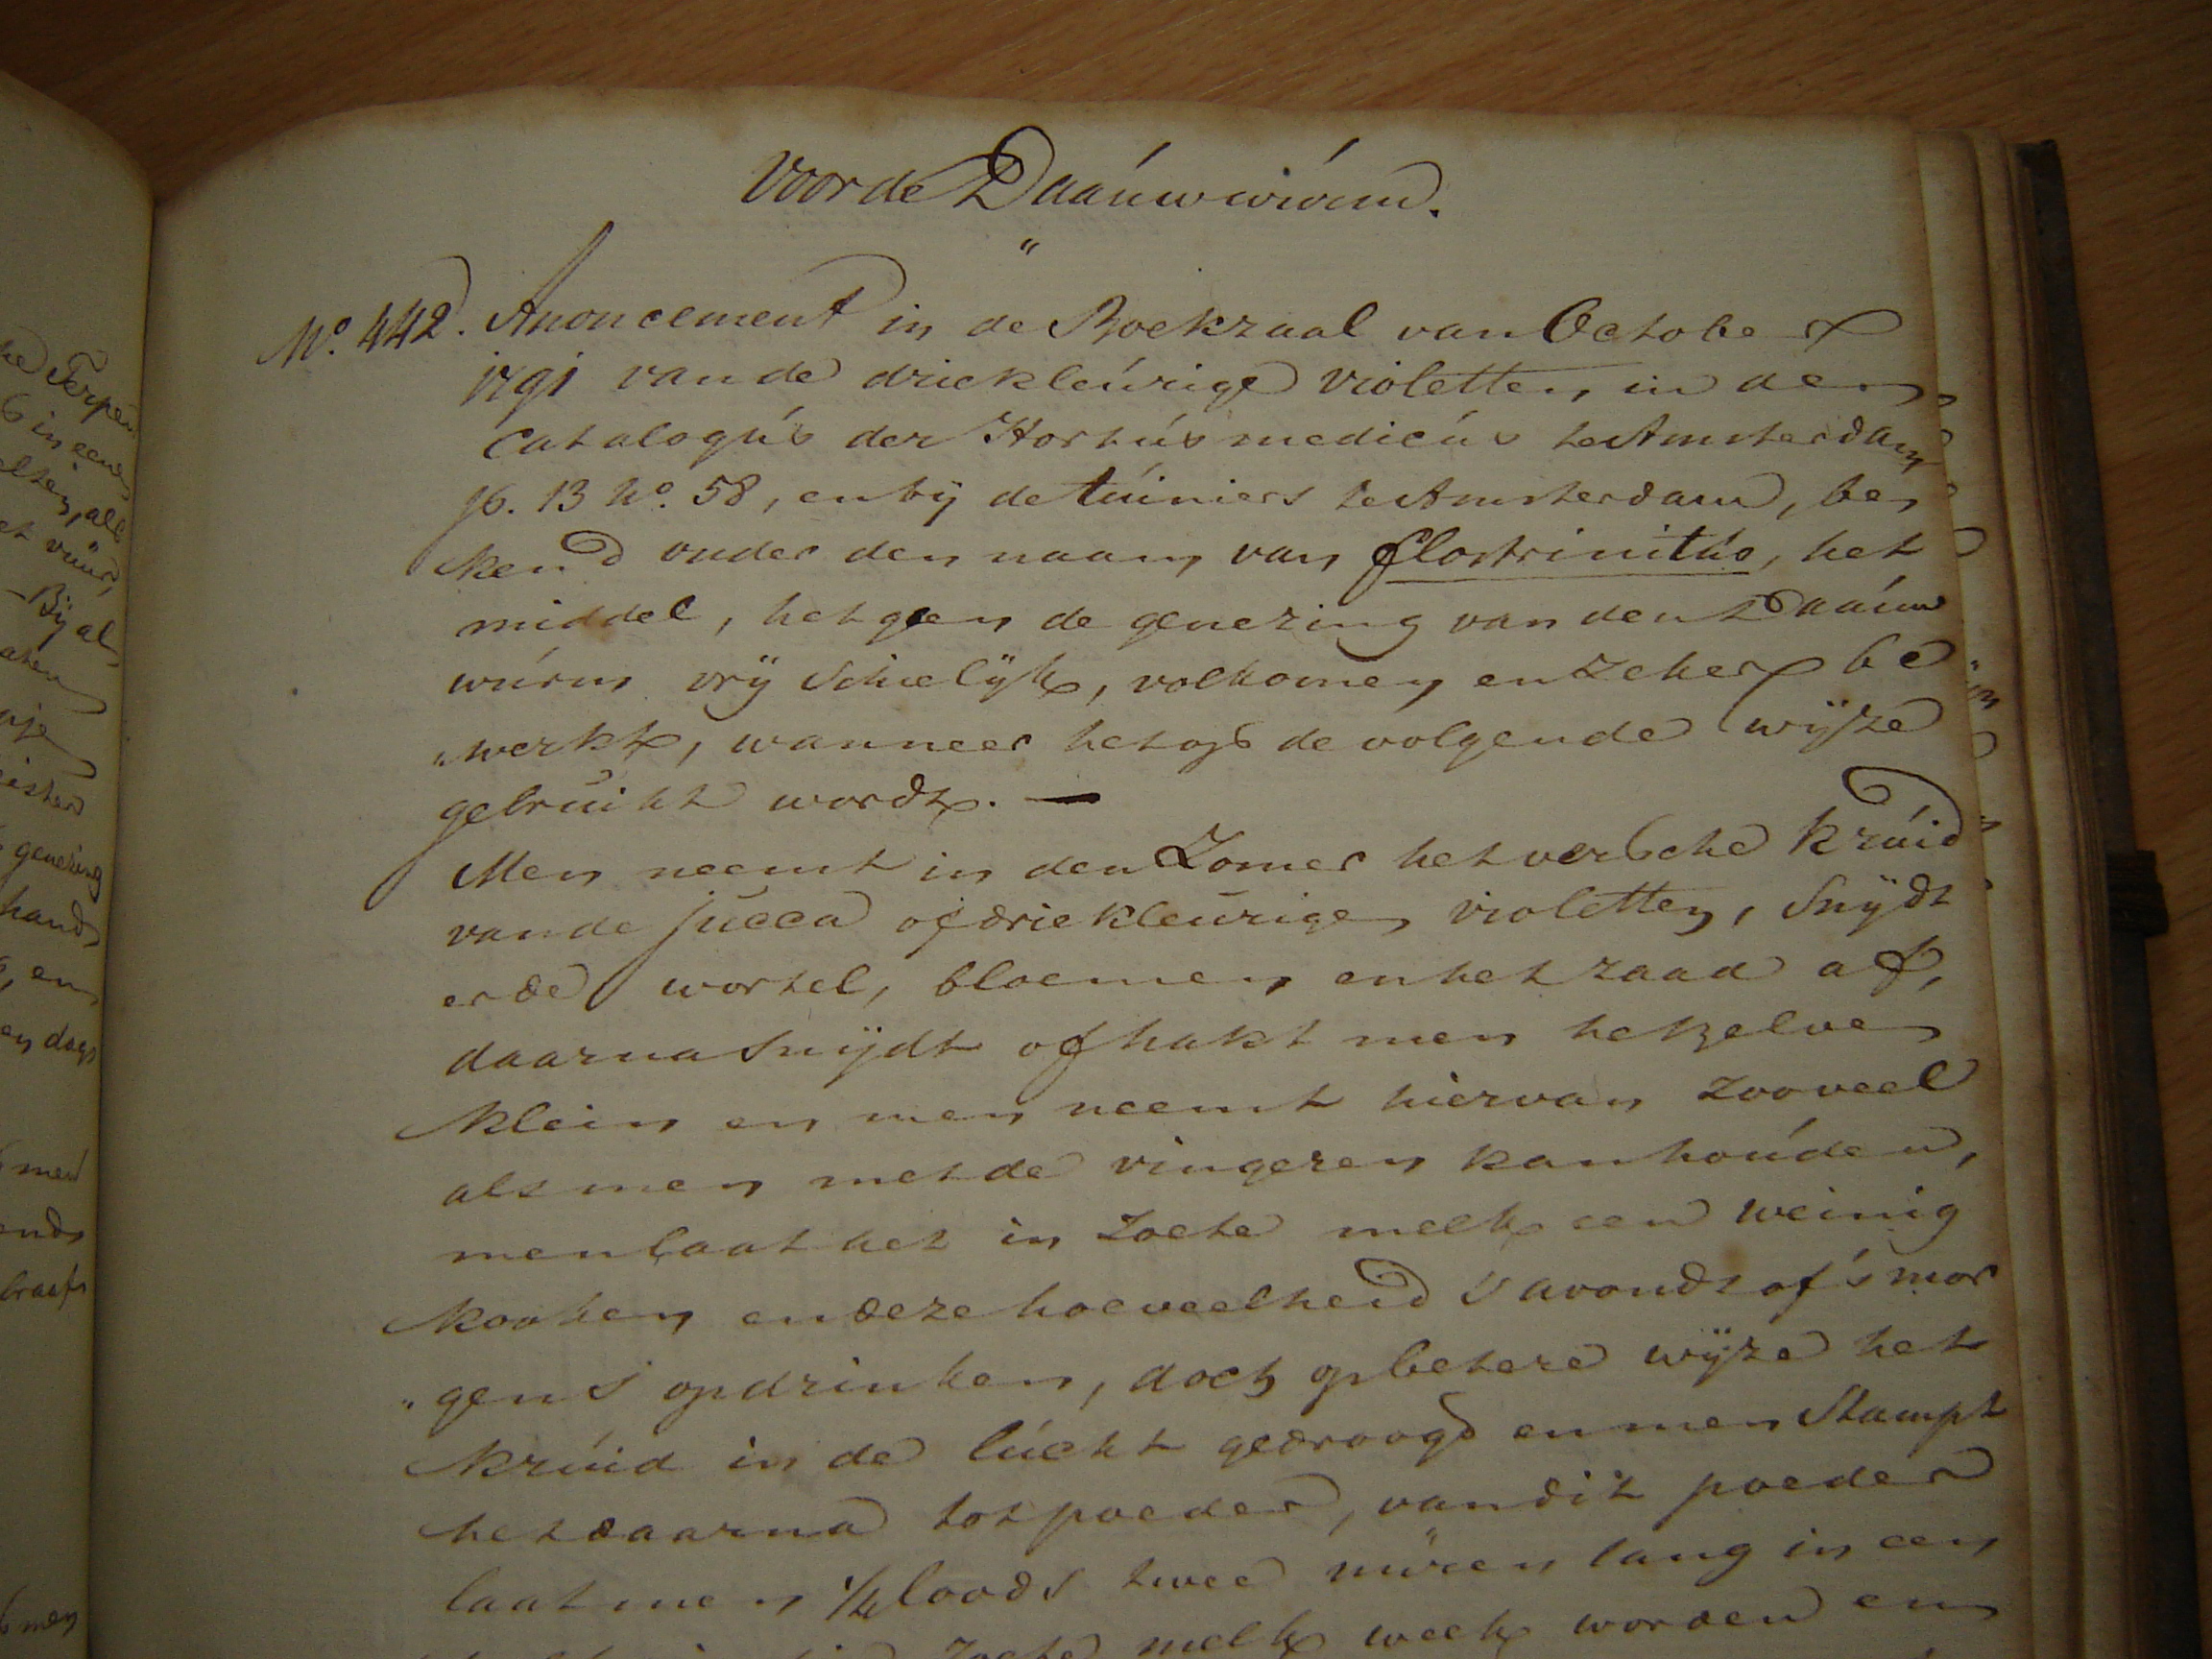 voor de Daauwwurm.
"
No. 442. Anoncement in de Boekzaal van October
1791 van de driekleurige violetten, in den
Catalogus der Hortus medicus te Amsterdam
p. 13 No. 58, en bij de tuiniers te Amsterdam, be
kend onder den naam van flostrinitus, het
middel, het geen de genezing van den Daauw
wurm vrij schielijk, volkomen en zeker be
"werkt, wanneer het op de volgende wijze
gebruikt wordt. —
Men neemt in den Zomer het versche kruid
van de jucca of driekleurigen violetten, snijdt
er de wortel, bloemen en het zaad af,
daarna snijdt of hakt men hetzelven
klein en men neemt hiervan zooveel
als men met de vingeren kan houden,
men laat het in zoete melk een weinig
kooken en deze hoeveelheid s avonds of s mor
"gens opdrinken, doch op betere wijze het
kruid in de lucht gedroogd en men stampt
het daarna tot poeder, van dit poeder
laat men 1/4 loods twee uuren lang in een
zoete melk week worden en
ke Terpen
in eene
als
et vuur,
Bij al
genezing
hand
en
en dags
men
ends
men